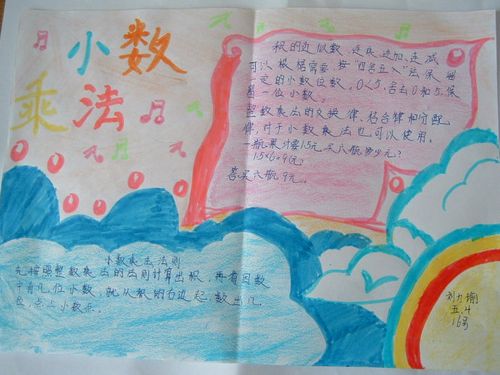 小数
乘法
积的近似数、连乘、连加、连减
可以根据需要,按“四舍五入”法保留
一定的小数位数,0<5,舍去0和5,保
留一位小数。
整数乘法的交换律、结合律和分配
律,对于小数乘法也可以使用。
一瓶果汁要1.5元,买六瓶要多少元?
1.5×6=9(元)
答:买六瓶9元。
小数乘法法则
先按照整数乘法的法则计算出积,再看因数
中有几位小数,就从积的右边起,数出几
位,点上小数点。
刘
五.4
16号